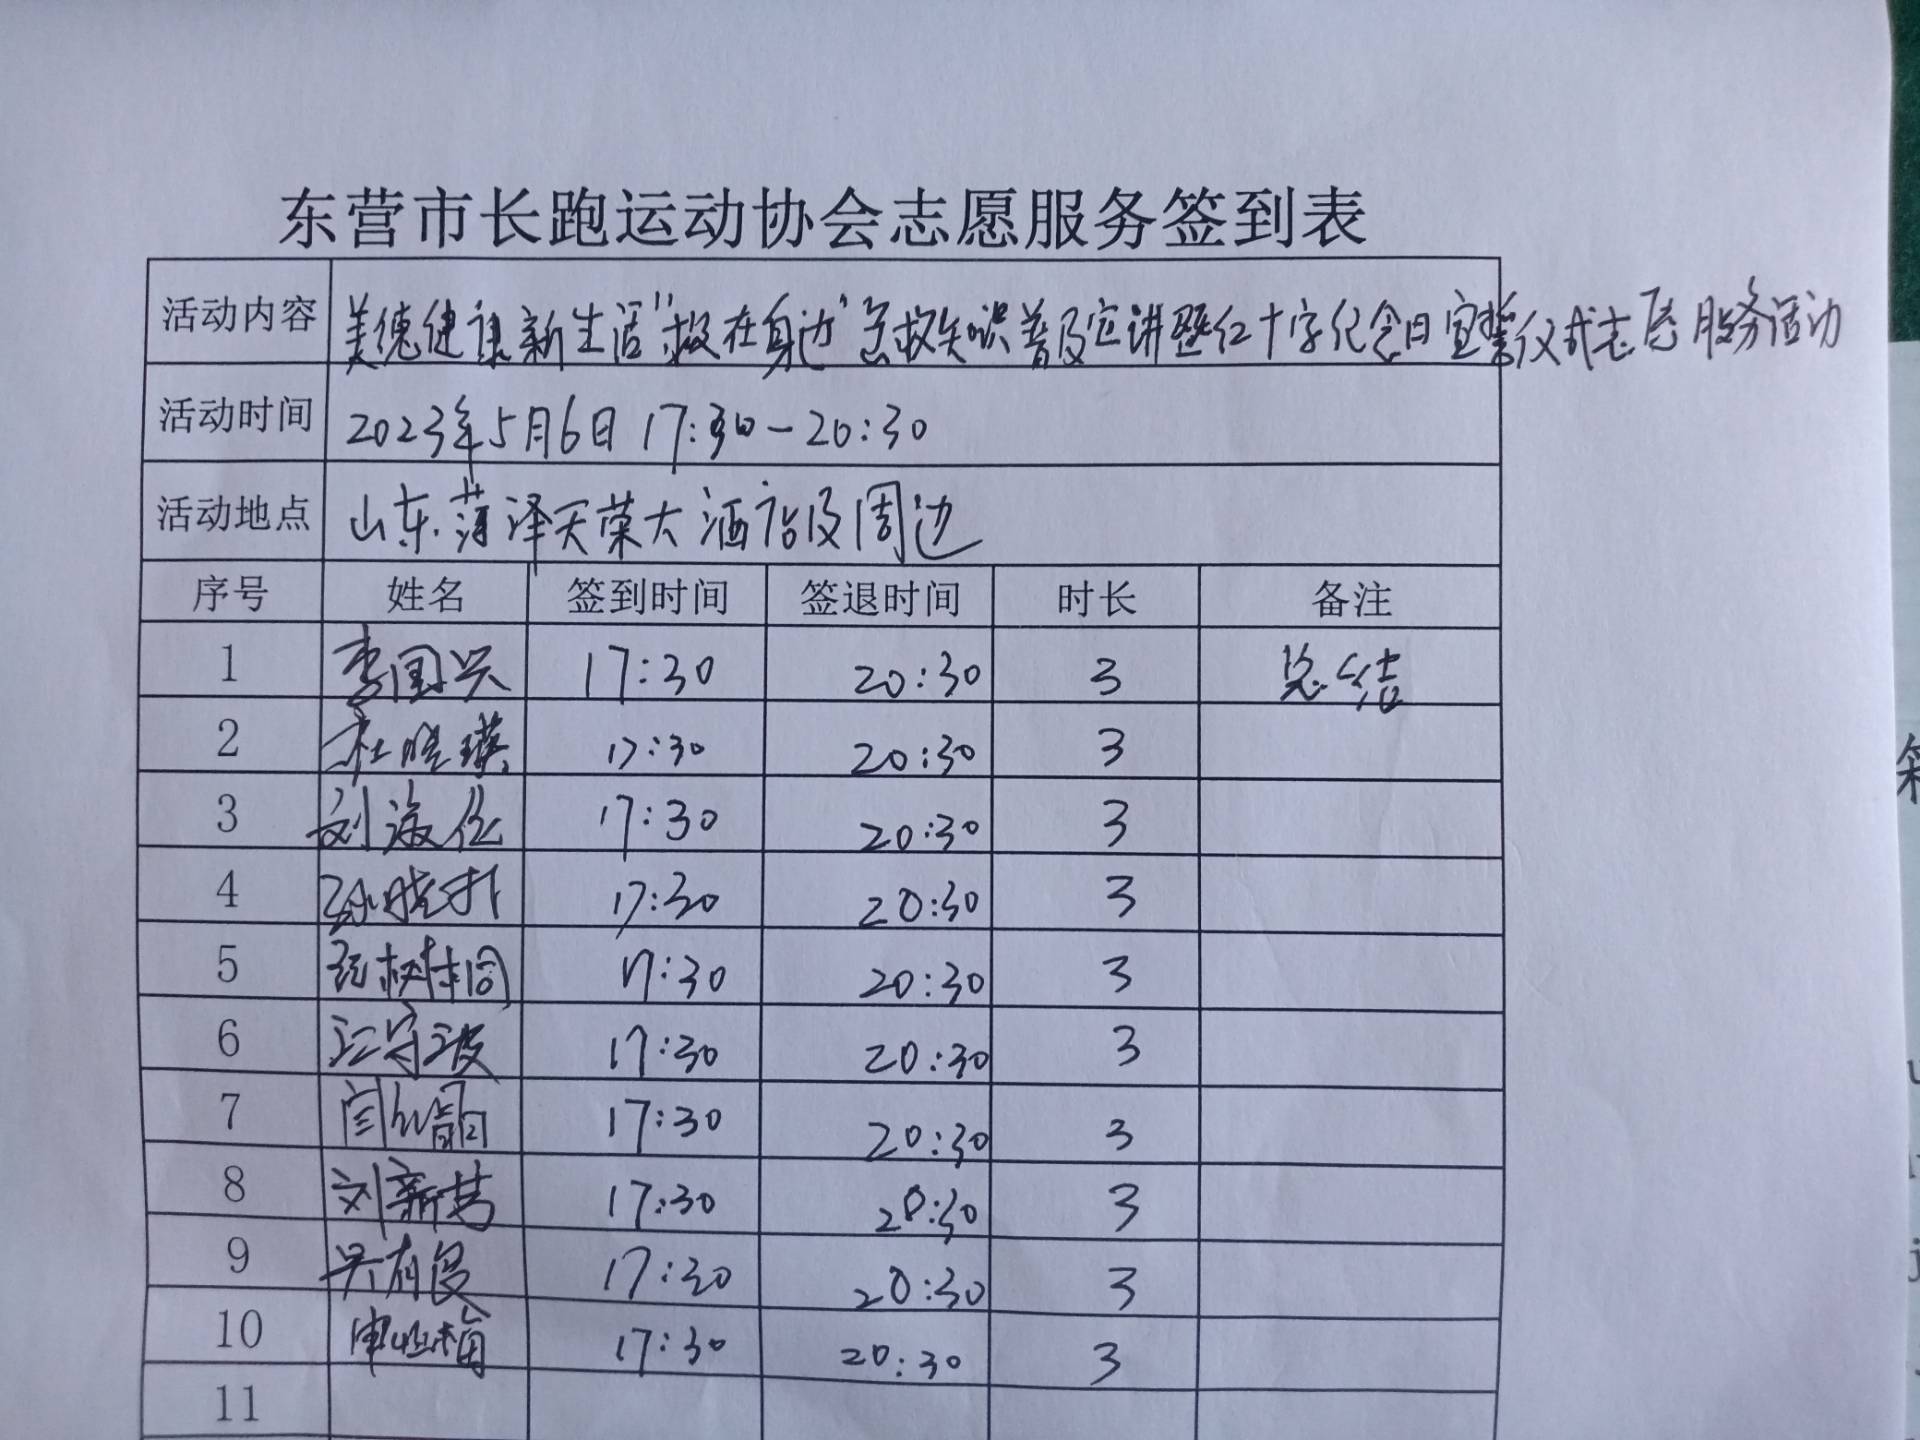 东营市长跑运动协会志愿服务签到表
活动内容 美德健康新生活"救在身边"急救知识普及宣讲暨红十字纪念日宣誓仪式志愿服务活动
活动时间 2023年5月6日 17:30-20:30
活动地点 山东菏泽天荣大酒店及周边
序号 姓名 签到时间 签退时间 时长 备注
1 李国兴 17:30 20:30 3 总结
2 杜晓瑛 17:30 20:30 3
3 刘海 17:30 20:30 3
4 孙晓 17:30 20:30 3
5 树桐 17:30 20:30 3
6 江守波 17:30 20:30 3
7 闫 17:30 20:30 3
8 刘新 17:30 20:30 3
9 吴有良 17:30 20:30 3
10 17:30 20:30 3
11